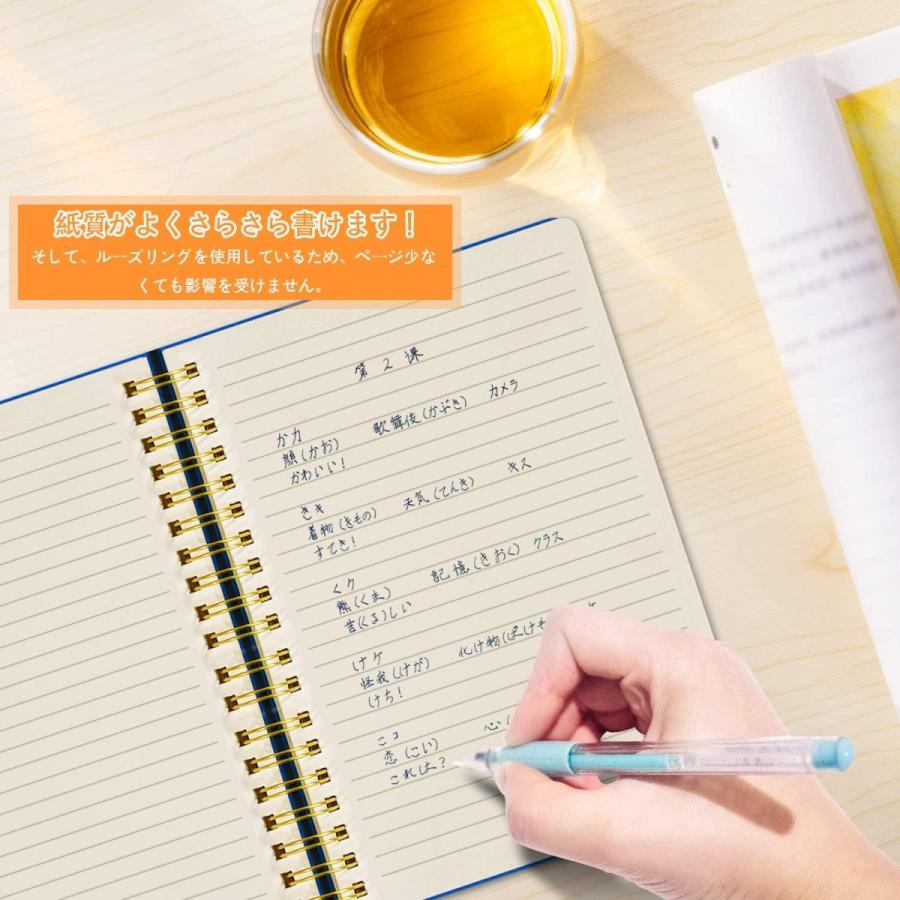 紙質がよくさらさら書けます！
そして、ルーズリングを使用しているため、ページ少な
くても影響を受けません。
第2课
かカ
顔(かお) 歌舞伎(かぶき) カメラ
かわいい!
きキ
着物(きもの) 天気(てんき) キス
すてき!
くク
熊(くま) 記憶(きおく) クラス
苦(くる)しい
けケ
怪我(けが) 化け物(ばけも
けち!
こコ
恋(こい) 心(
これは?